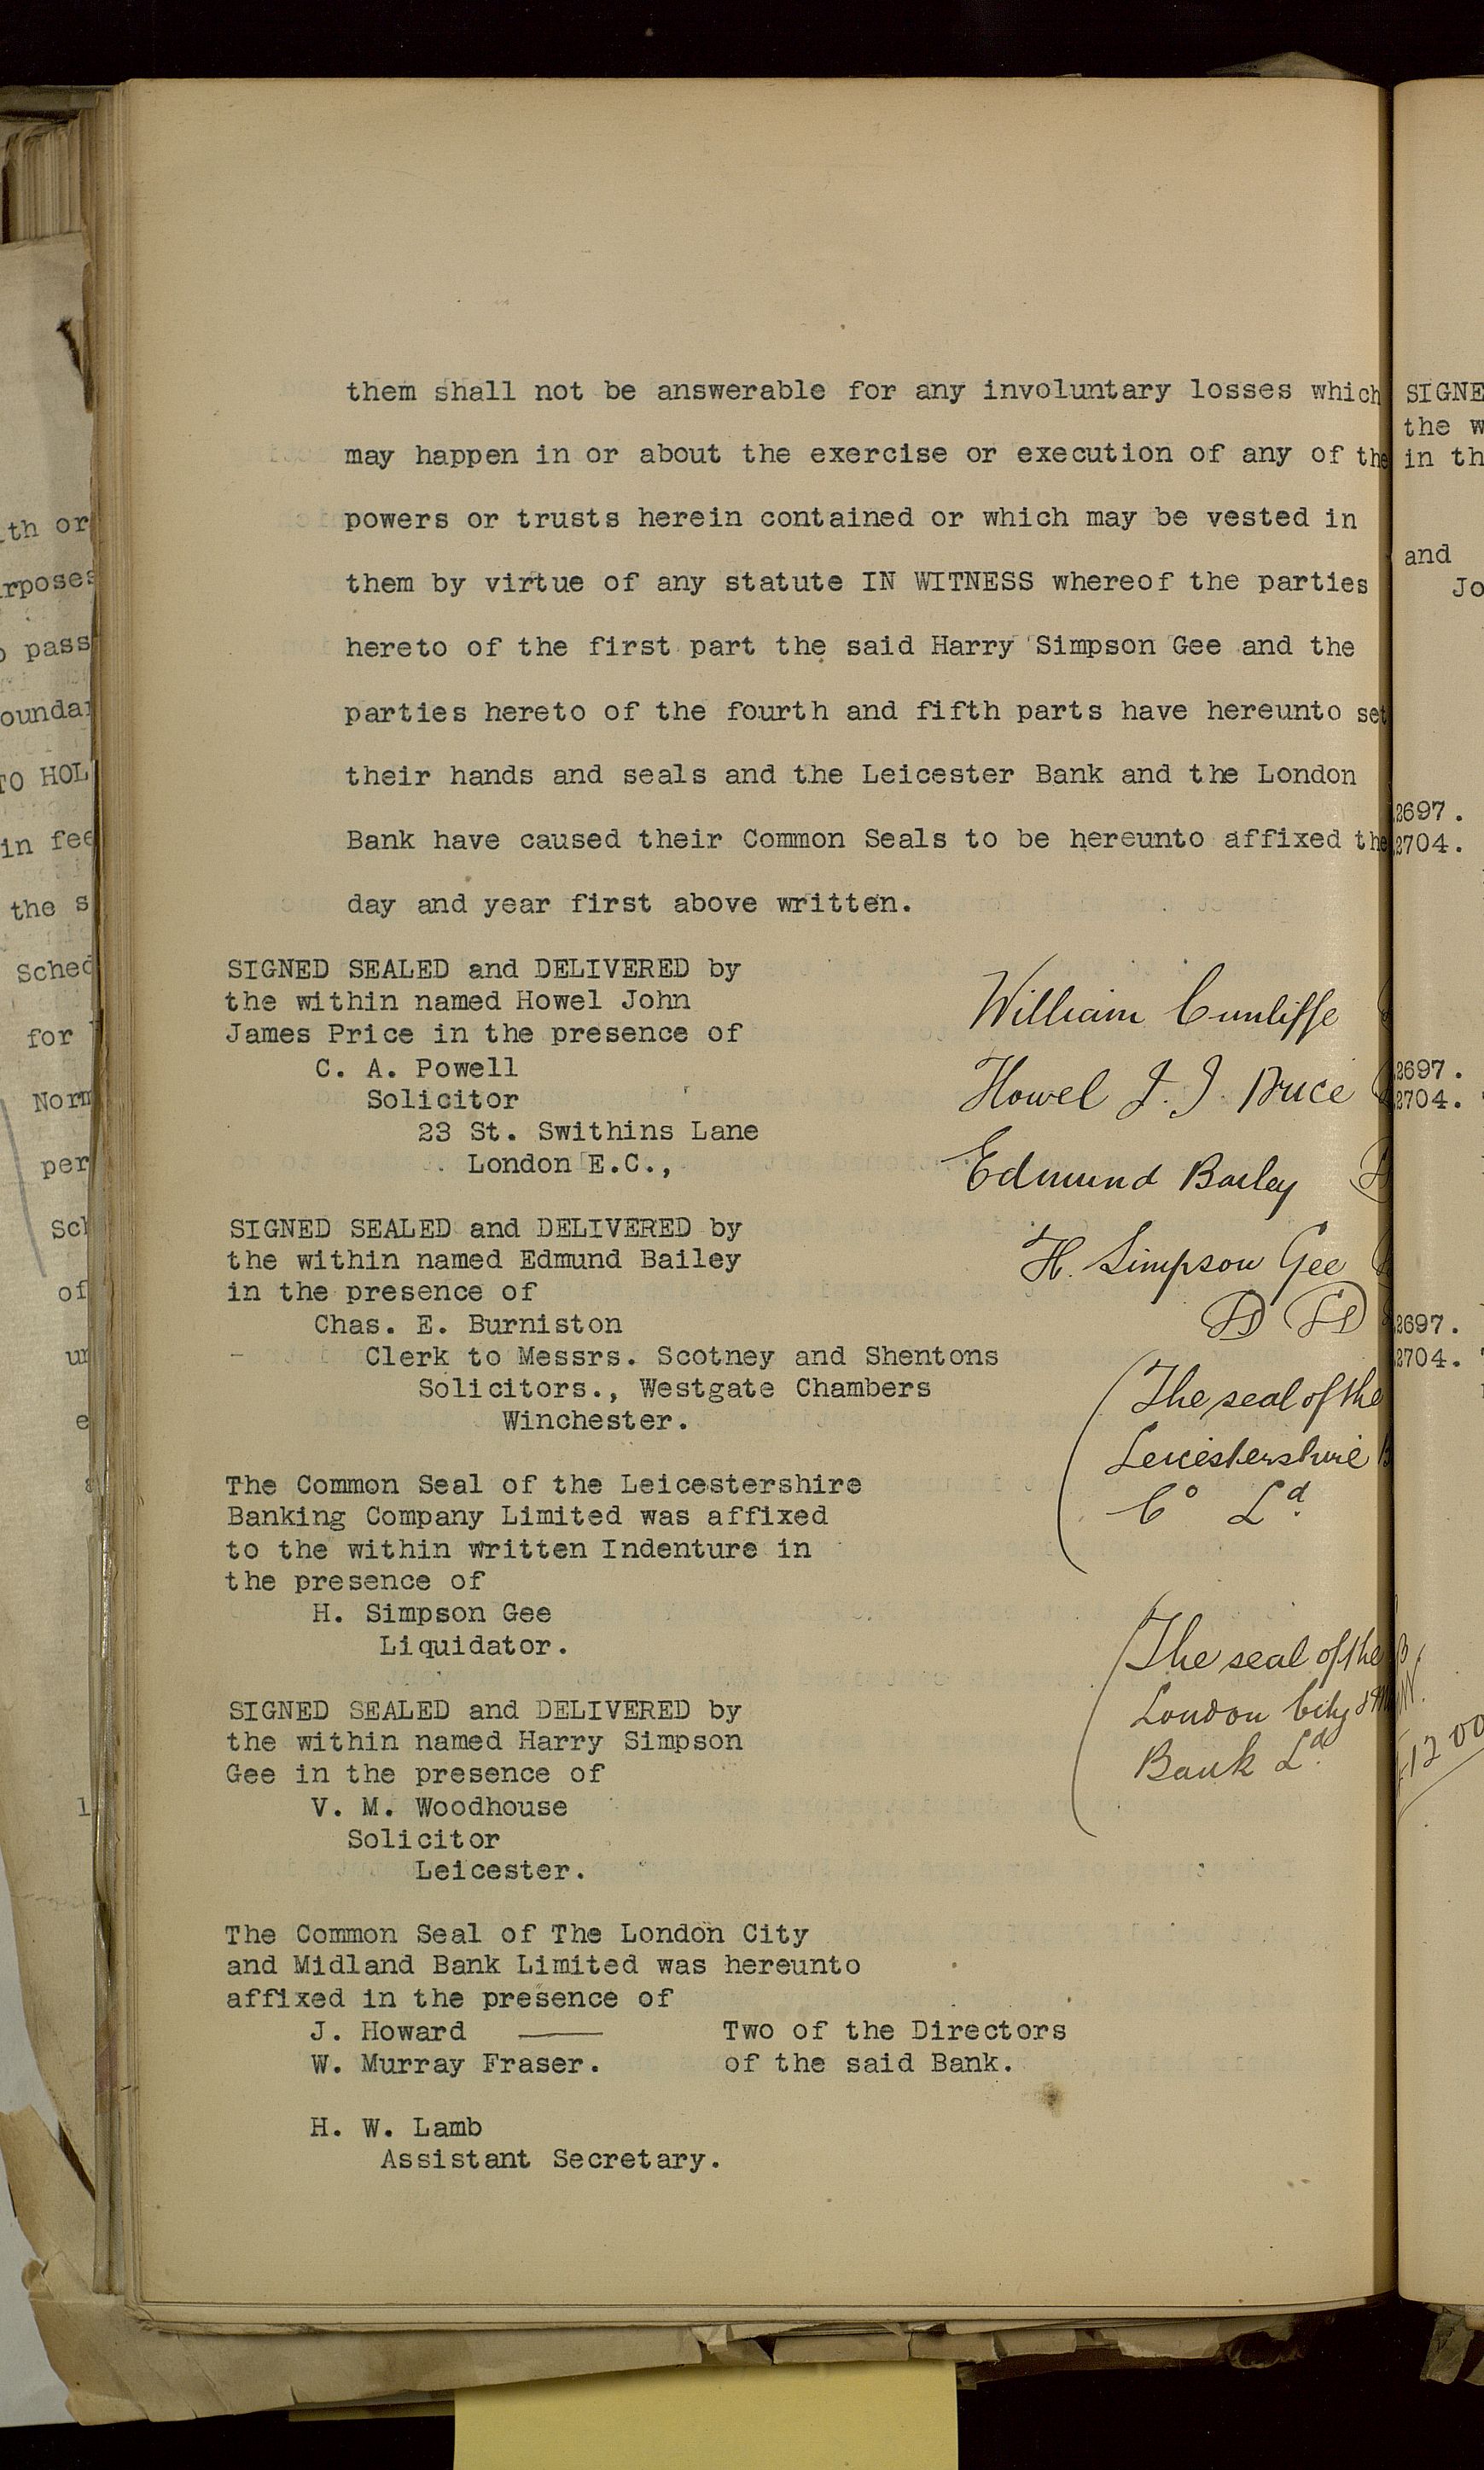 them shall not be answerable for any involuntary losses which
may happen in or about the exercise or execution of any of the
powers or trusts herein contained or which may be vested in
them by virtue of any statute IN WITNESS whereof the parties
hereto of the first part the said Harry Simpson Gee and the
parties hereto of the fourth and fifth parts have hereunto set
their hands and seals and the Leicester Bank and the London
Bank have caused their Common Seals to be hereunto affixed the
day and year first above written.
SIGNED SEALED and DELIVERED by
the within named Howel John
James Price in the presence of
C. A. Powell
Solicitor
23 St. Swithins Lane
London E.C.,
SIGNED SEALED and DELIVERED by
the within named Edmund Bailey
in the presence of
Chas. E. Burniston
Clerk to Messrs. Scotney and Shentons
Solicitors., Westgate Chambers
Winchester.
The Common Seal of the Leicestershire
Banking Company Limited was affixed
to the within written Indenture in
the presence of
H. Simpson Gee
Liquidator.
SIGNED SEALED and DELIVERED by
the within named Harry Simpson
Gee in the presence of
V. M. Woodhouse
Solicitor
Leicester.
The Common Seal of The London City
and Midland Bank Limited was hereunto
affixed in the presence of
J. Howard —— Two of the Directors
W. Murray Fraser. of the said Bank.
H. W. Lamb
Assistant Secretary.
William Cunliffe
Howel J. J. Price
Edmund Bailey
H. Simpson Gee
The seal of the
Leicestershire
Co Ld.
The seal of the
London City &
Bank Ld.
th or
rposes
pass
TO HOL
in fee
the s
Sched
for
Norm
per
Sch
of
SIGNE
the w
in th
and
Jo
2697.
2704.
2697.
2704.
2697.
2704.